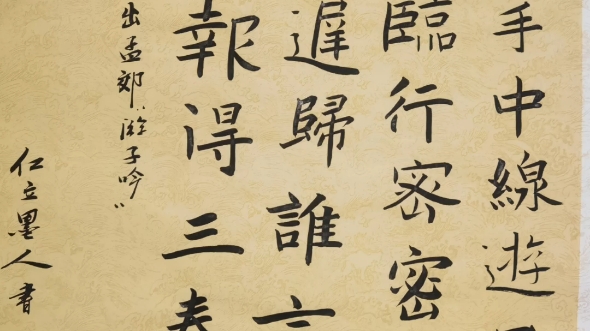 手中線遊
臨行密密
遲歸誰言
報得三春
出孟郊"游子吟"
仁立墨人書